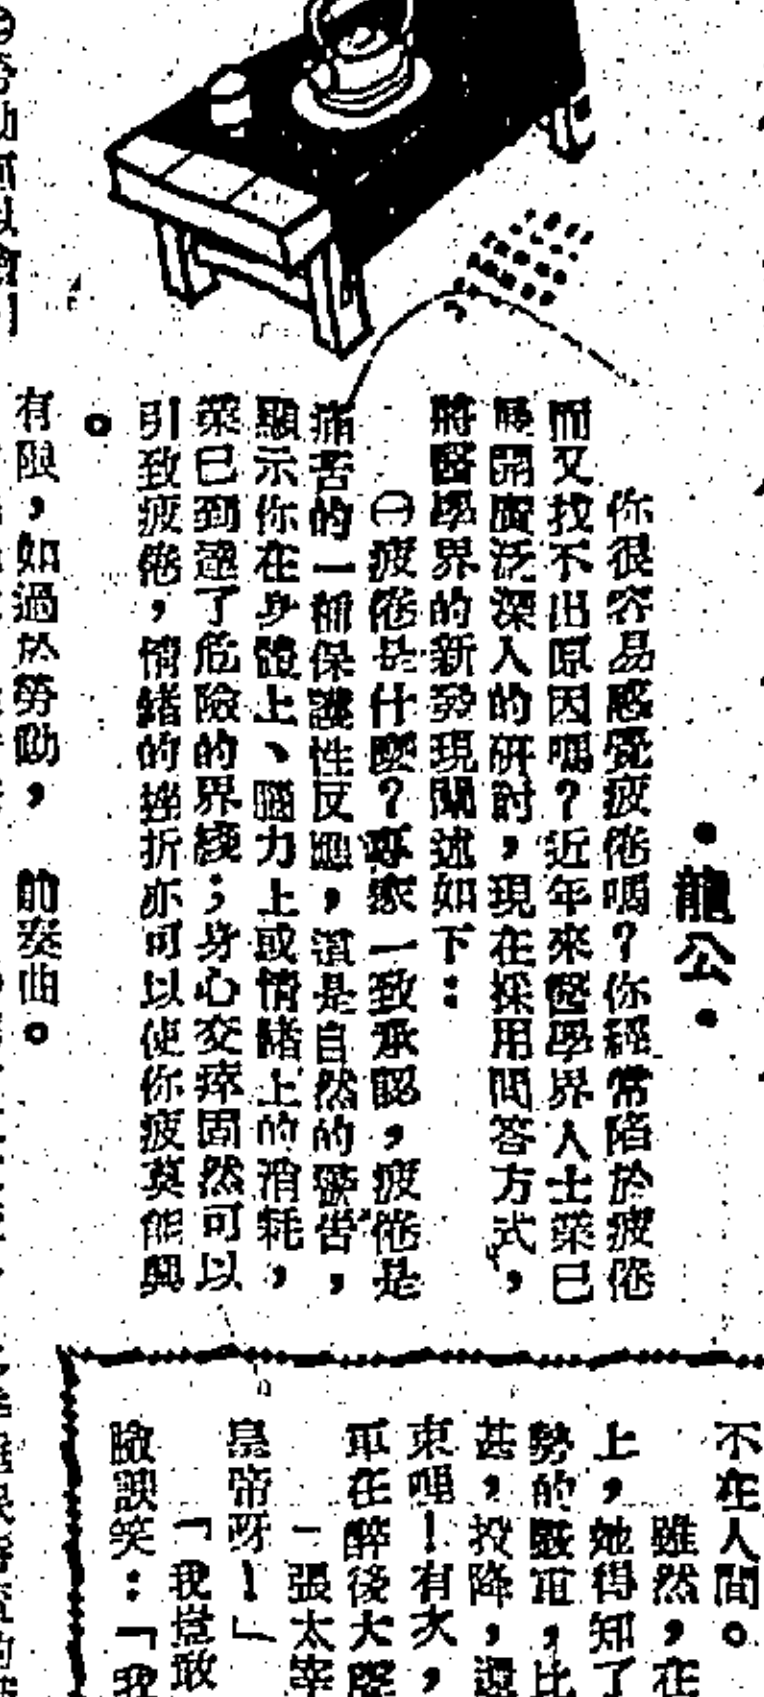 ・龍公・
你很容易感覺疲倦嗎？你經常陷於疲倦
而又找不出原因嗎？近年來醫學界人士業已
展開廣泛深入的研討，現在採用問答方式，
將醫學界的新發現闡述如下：
㊀疲倦是什麼？專家一致承認，疲倦是
痛苦的一種保護性反應，這是自然的警告，
顯示你在身體上、腦力上或情緒上的消耗，
業已到達了危險的界綫；身心交瘁固然可以
引致疲倦，情緒的挫折亦可以使你疲莫能興
。
有限，如過於勞動，
前奏曲。
不在人間。
雖然，在
上，她得知了
勢的嚴重，比
甚，投降，還
東哩！有次，
軍在醉後大
張太宰
皇帝呀！」
「我豈敢
臉諛笑：「我